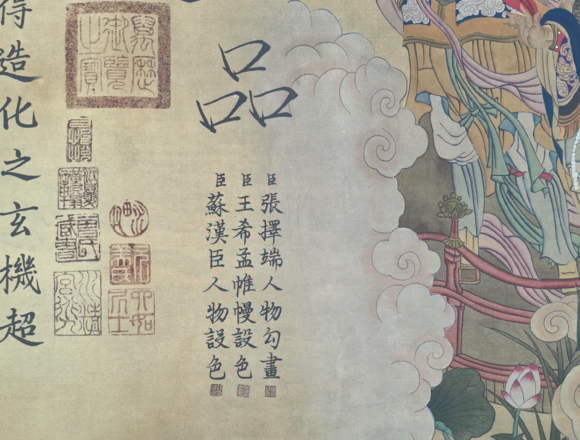 品
臣張擇端人物勾畫
臣王希孟帷幔設色
臣蘇漢臣人物設色
萬曆
御覽
之寶
得造化之玄機超